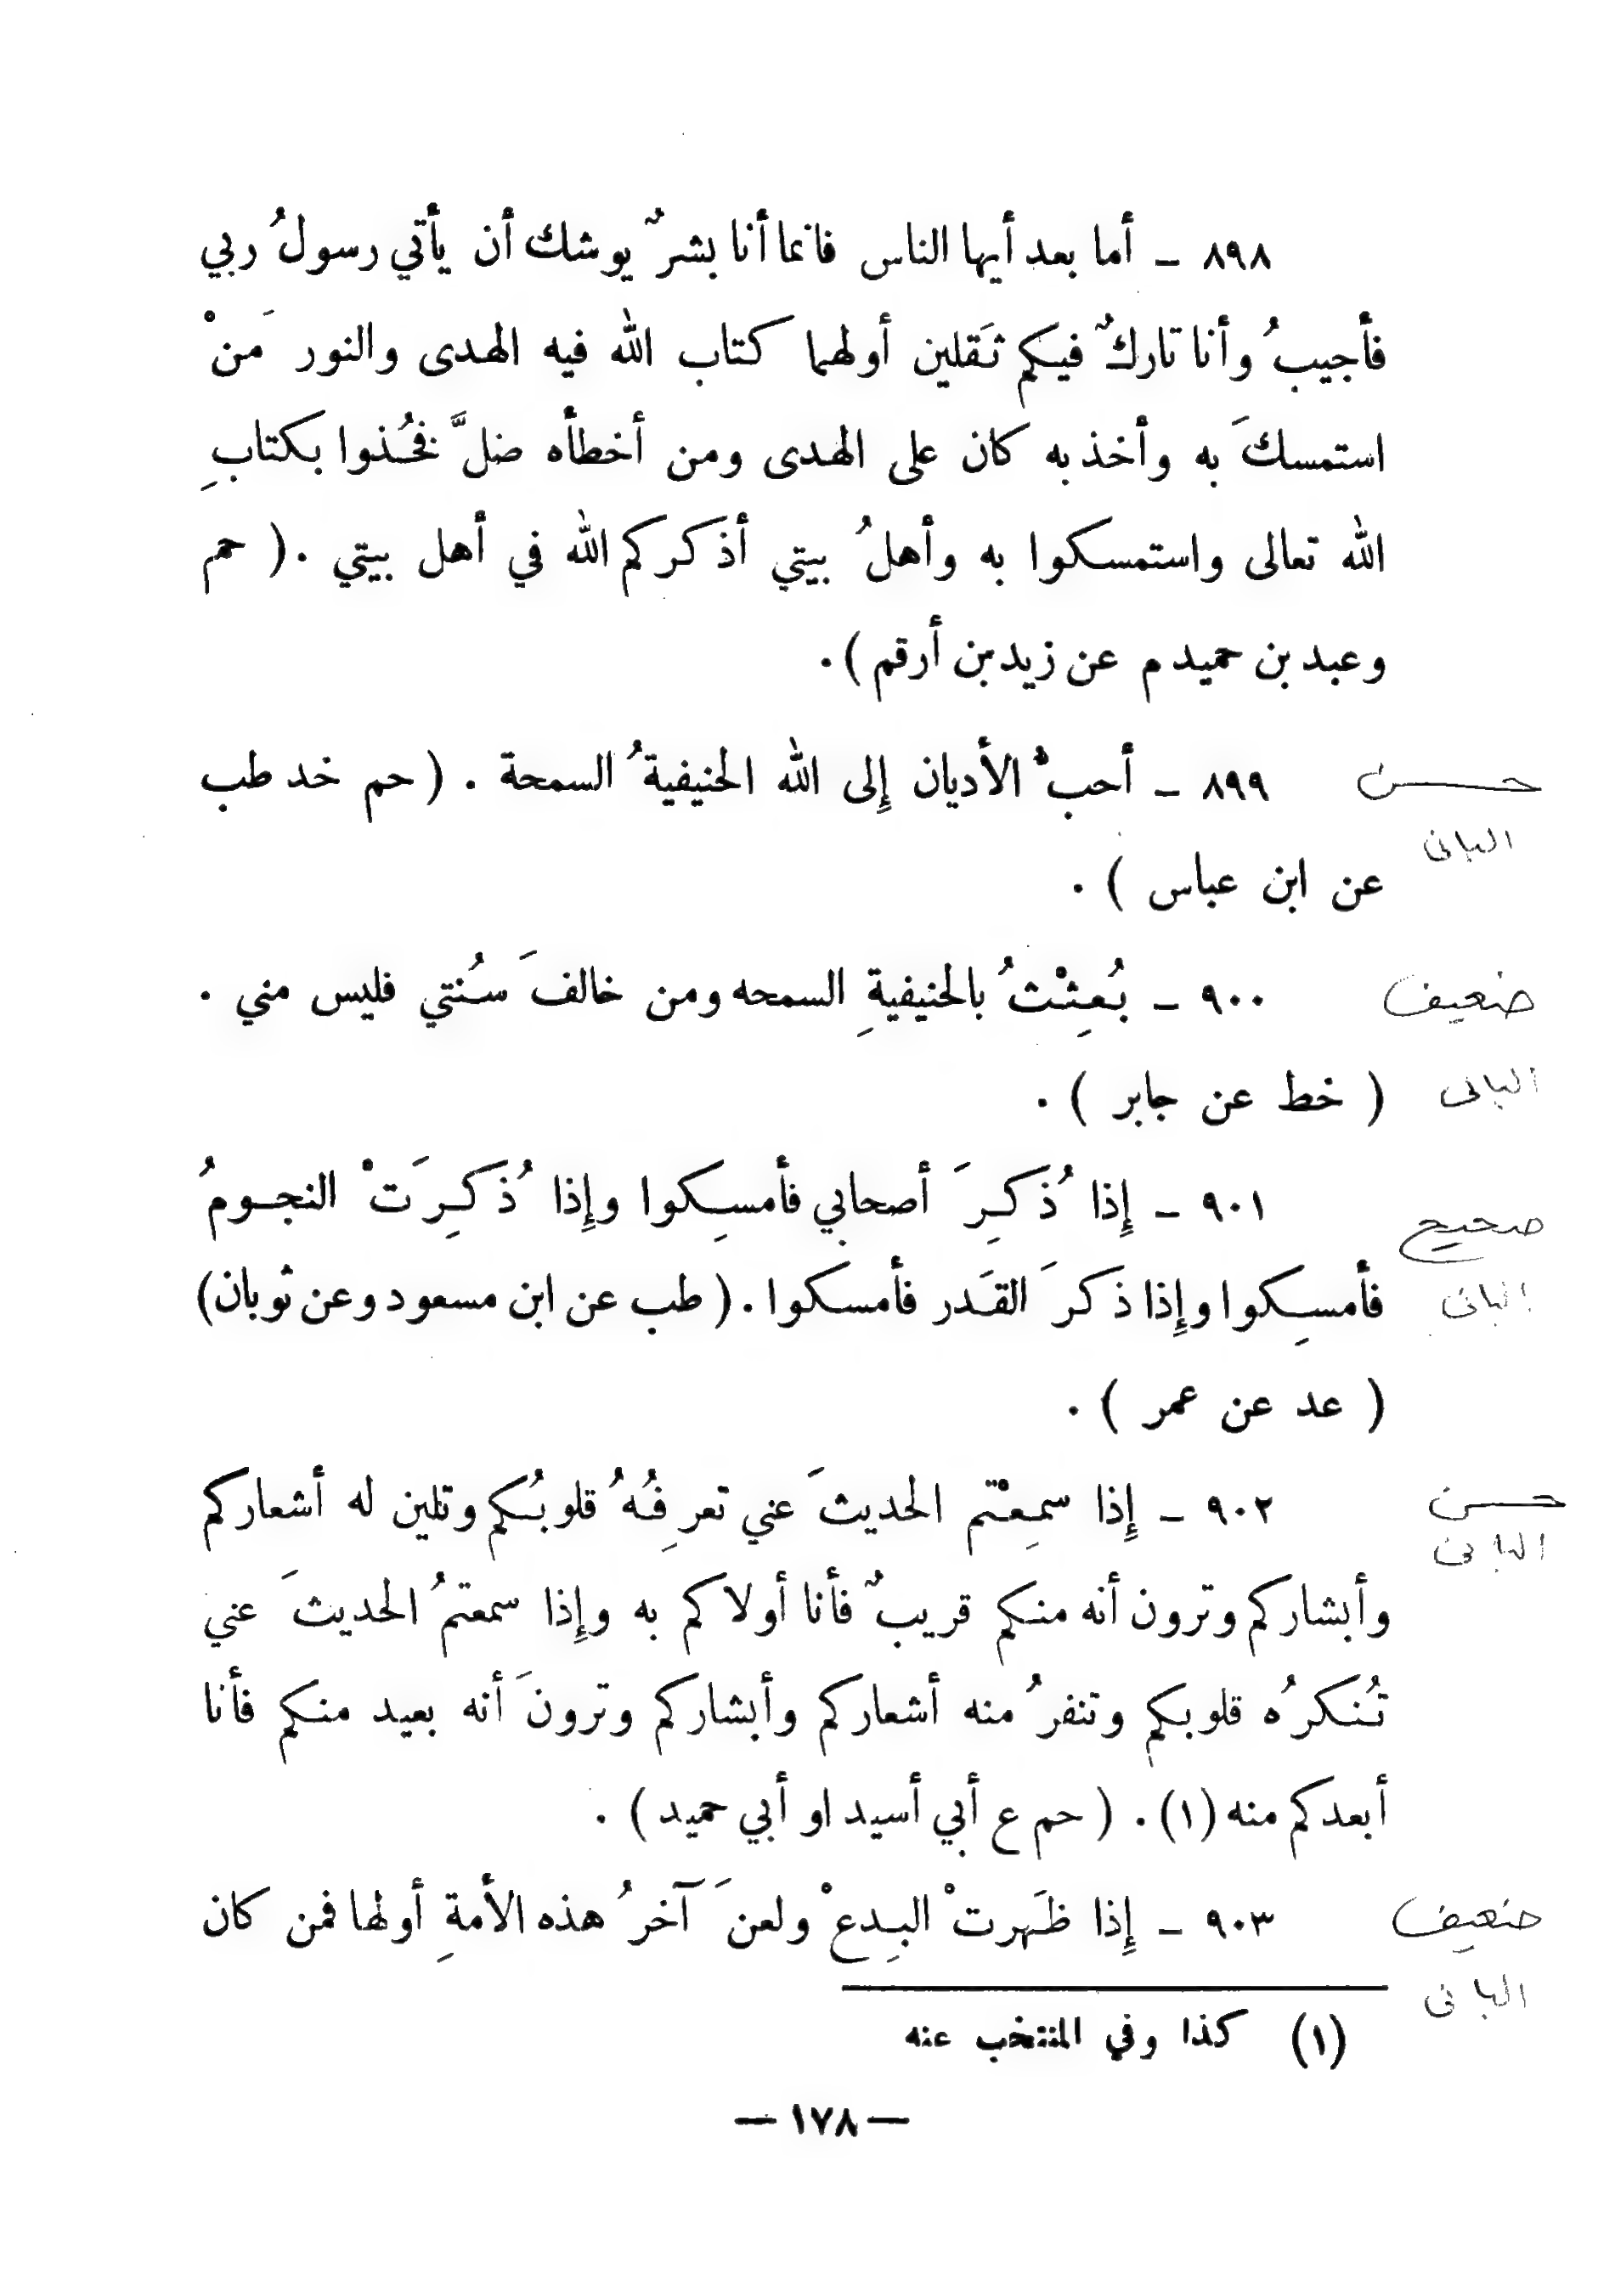 ٨٩٨ ـ أما بعد أيها الناس فانما أنا بشرٌ يوشك أن يأتي رسولُ ربي
فأجيبُ وأنا تاركٌ فيكم ثَقلين أولهما كتاب الله فيه الهدى والنور مَنْ
استمسكَ به وأخذ به كان على الهدى ومن أخطأه ضلَّ فخُذوا بكتابِ
الله تعالى واستمسكوا به وأهلُ بيتي أذكركم الله في أهل بيتي . ( حم
وعبد بن حميد م عن زيد بن أرقم ) .
٨٩٩ ـ أحبُّ الأديان إِلى الله الحنيفيةُ السمحة . ( حم خد طب
حسن
البانى
عن ابن عباس ) .
٩٠٠ ـ بُعِثْتُ بالحنيفيةِ السمحه ومن خالفَ سُنتي فليس مني .
ضعيف
( خط عن جابر ) .
البانى
٩٠١ ـ إِذا ذُكِرَ أصحابي فأمسِكوا وإِذا ذُكِرَتْ النجومُ
صحيح
فأمسِكوا وإِذا ذكرَ القَدر فأمسكوا . ( طب عن ابن مسعود وعن ثوبان )
البانى
( عد عن عمر ) .
٩٠٢ ـ إِذا سمِعْتم الحديثَ عني تعرِفُهُ قلوبُكم وتلين له أشعاركم
حسن
البانى
وأبشاركم وترون أنه منكم قريبٌ فأنا أولاكم به وإِذا سمعتمُ الحديثَ عني
تُنكرُه قلوبكم وتنفرُ منه أشعاركم وأبشاركم وترونَ أنه بعيد منكم فأنا
أبعدكم منه (١) . ( حم ع أبي أسيد او أبي حميد ) .
٩٠٣ ـ إِذا ظَهرتْ البِدعْ ولعنَ آخرُ هذه الأمةِ أولها فمن كان
ضعيف
البانى
(١) كذا وفي المنتخب عنه
— ١٧٨ —